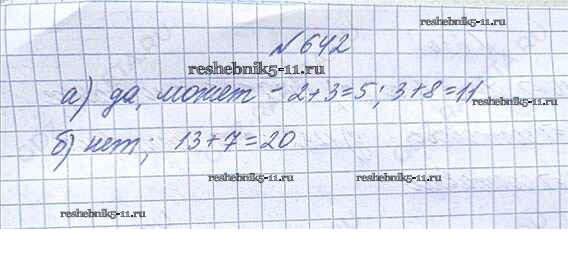 reshebnik5-11.ru
№ 642
reshebnik5-11.ru
а) да, может - 2+3=5; 3+8=11
б) нет; 13+7=20
reshebnik5-11.ru
reshebnik5-11.ru
reshebnik5-11.ru